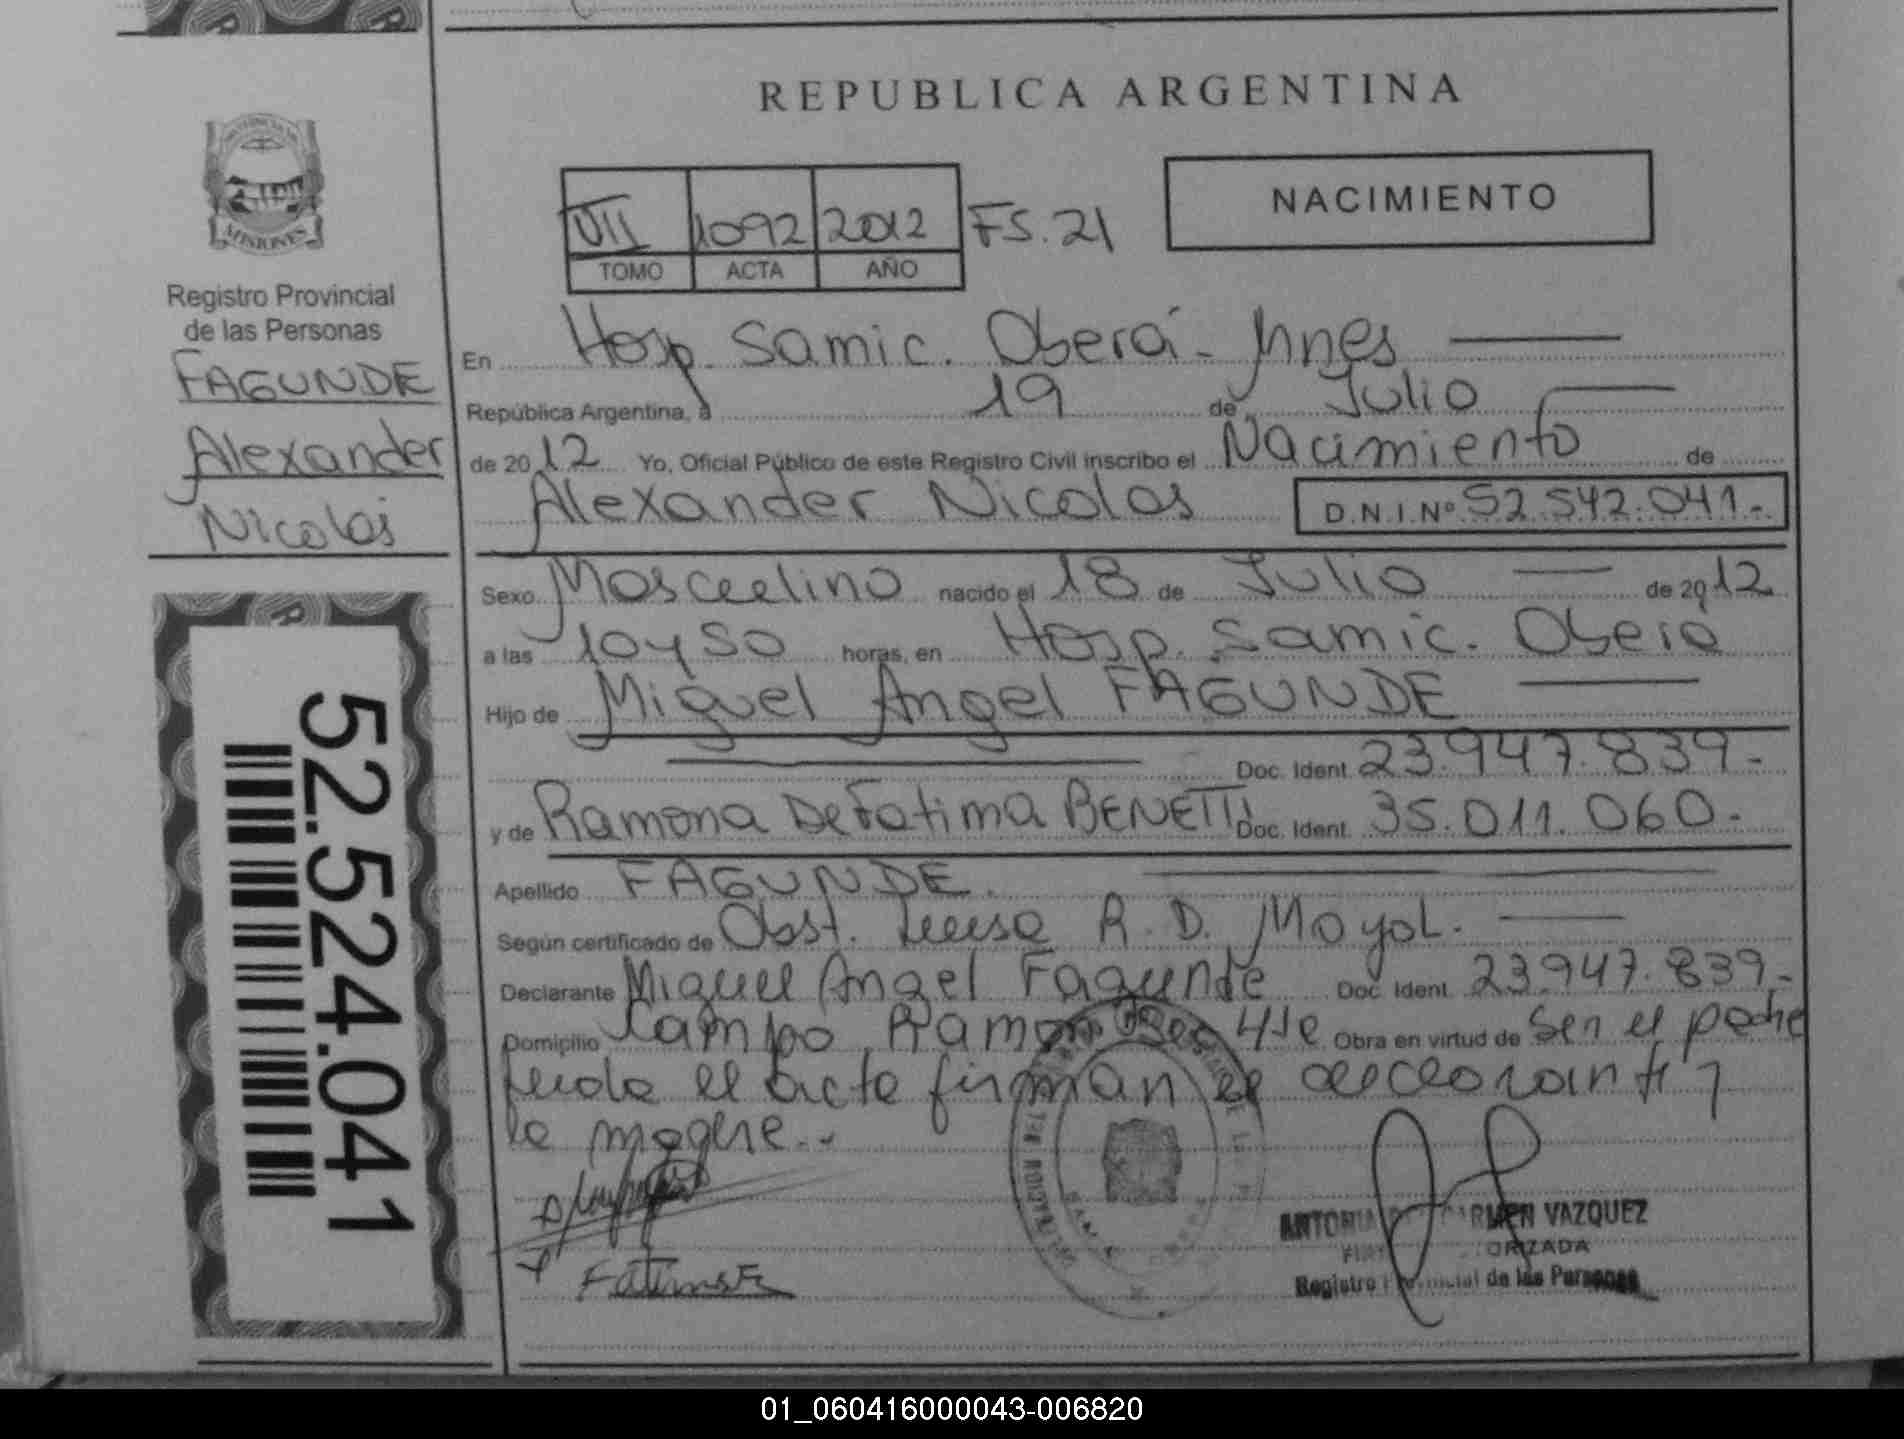 REPUBLICA ARGENTINA
MISIONES
Registro Provincial
de las Personas
FAGUNDE
Alexander
Nicolás
52.524.041
VII 1092 2012 FS. 21
TOMO ACTA AÑO
NACIMIENTO
En Hosp. Samic. Oberá - Mnes
República Argentina, a 19 de Julio
de 2012 Yo, Oficial Público de este Registro Civil inscribo el Nacimiento de
Alexander Nicolas D.N.I.Nº 52.542.041.-
Sexo Masculino nacido el 18 de Julio de 2012
a las 10 y 50 horas, en Hosp. Samic. Oberá
Hijo de Miguel Angel FAGUNDE
Doc. Ident. 23.947.839.-
y de Ramona De Fatima BENETTI Doc. Ident. 35.011.060.-
Apellido FAGUNDE.
Según certificado de Obst. Teresa R. D. Mayol.
Declarante Miguel Angel Fagunde Doc. Ident. 23.947.839.-
Domicilio Campo Ramon Obra en virtud de Ser el padre
el acta firman el declarante y
la madre..
Fatima
ANTONIA CARMEN VAZQUEZ
ORIZADA
Registro Provincial de las Personas
01_060416000043-006820